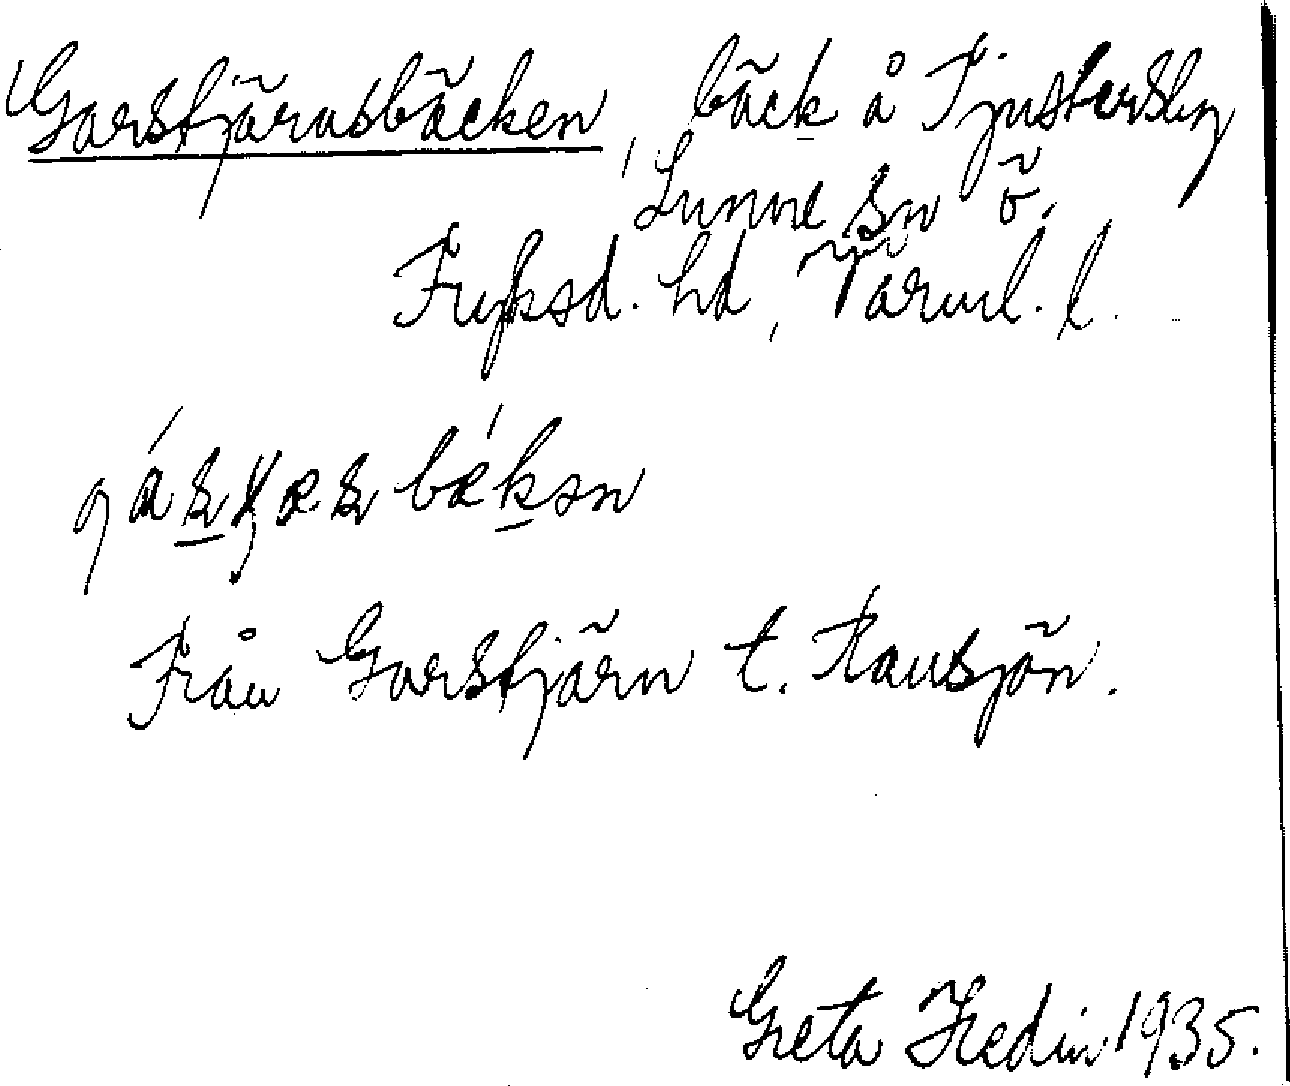 Garstjärnsbäcken, bäck å Tjustersby
Sunne sn Ö.
Fryksd. hd, Värml. l.
Från Garstjärn t. Rausjön.
Greta Hedin 1935.